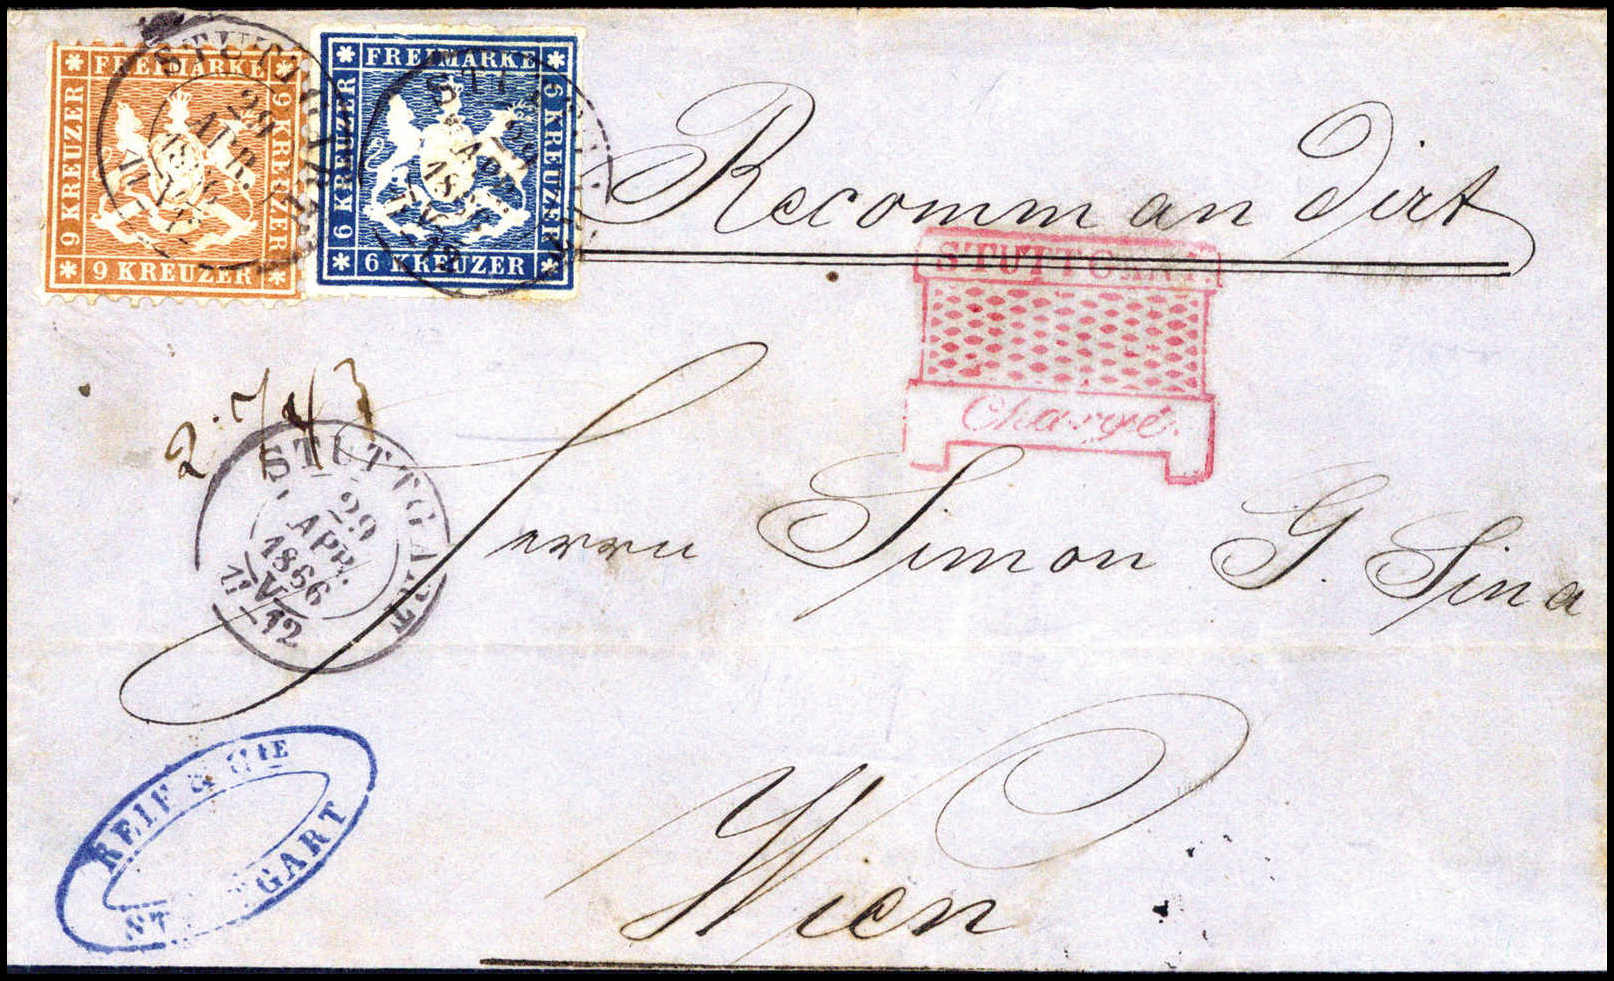 FREIMARKE
9 KREUZER
9 KREUZER
9 KREUZER
STUTTGART
29
APR.
FREIMARKE
6 KREUZER
6 KREUZER
6 KREUZER
APR
Recommandirt
STUTTGART
Chargé.
STUTTGART
29
APR.
1866
V
11 12
Herrn Simon G. Sina
Wien
REIF & CIE
STUTTGART